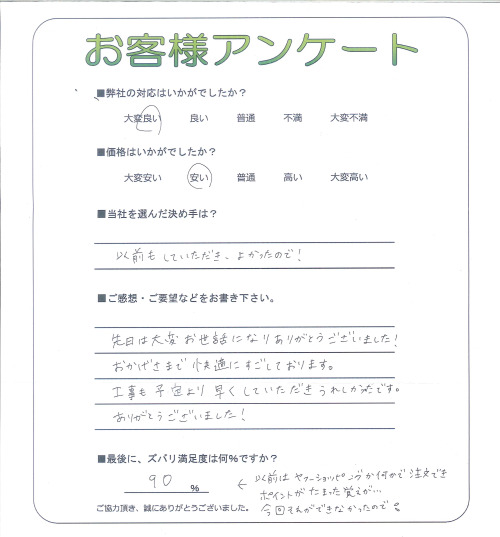 お客様アンケート
■弊社の対応はいかがでしたか？
大変良い 良い 普通 不満 大変不満
■価格はいかがでしたか？
大変安い 安い 普通 高い 大変高い
■当社を選んだ決め手は？
以前もしていただき、よかったので！
■ご感想・ご要望などをお書き下さい。
先日は大変お世話になりありがとうございました！
おかげさまで快適にすごしております。
工事も予定より早くしていただきうれしかったです。
ありがとうございました！
■最後に、ズバリ満足度は何%ですか？
90 %
← 以前はヤフーショッピングか何かで注文でき
ポイントがたまった覚えが…
今回それができなかったので。
ご協力頂き、誠にありがとうございました。